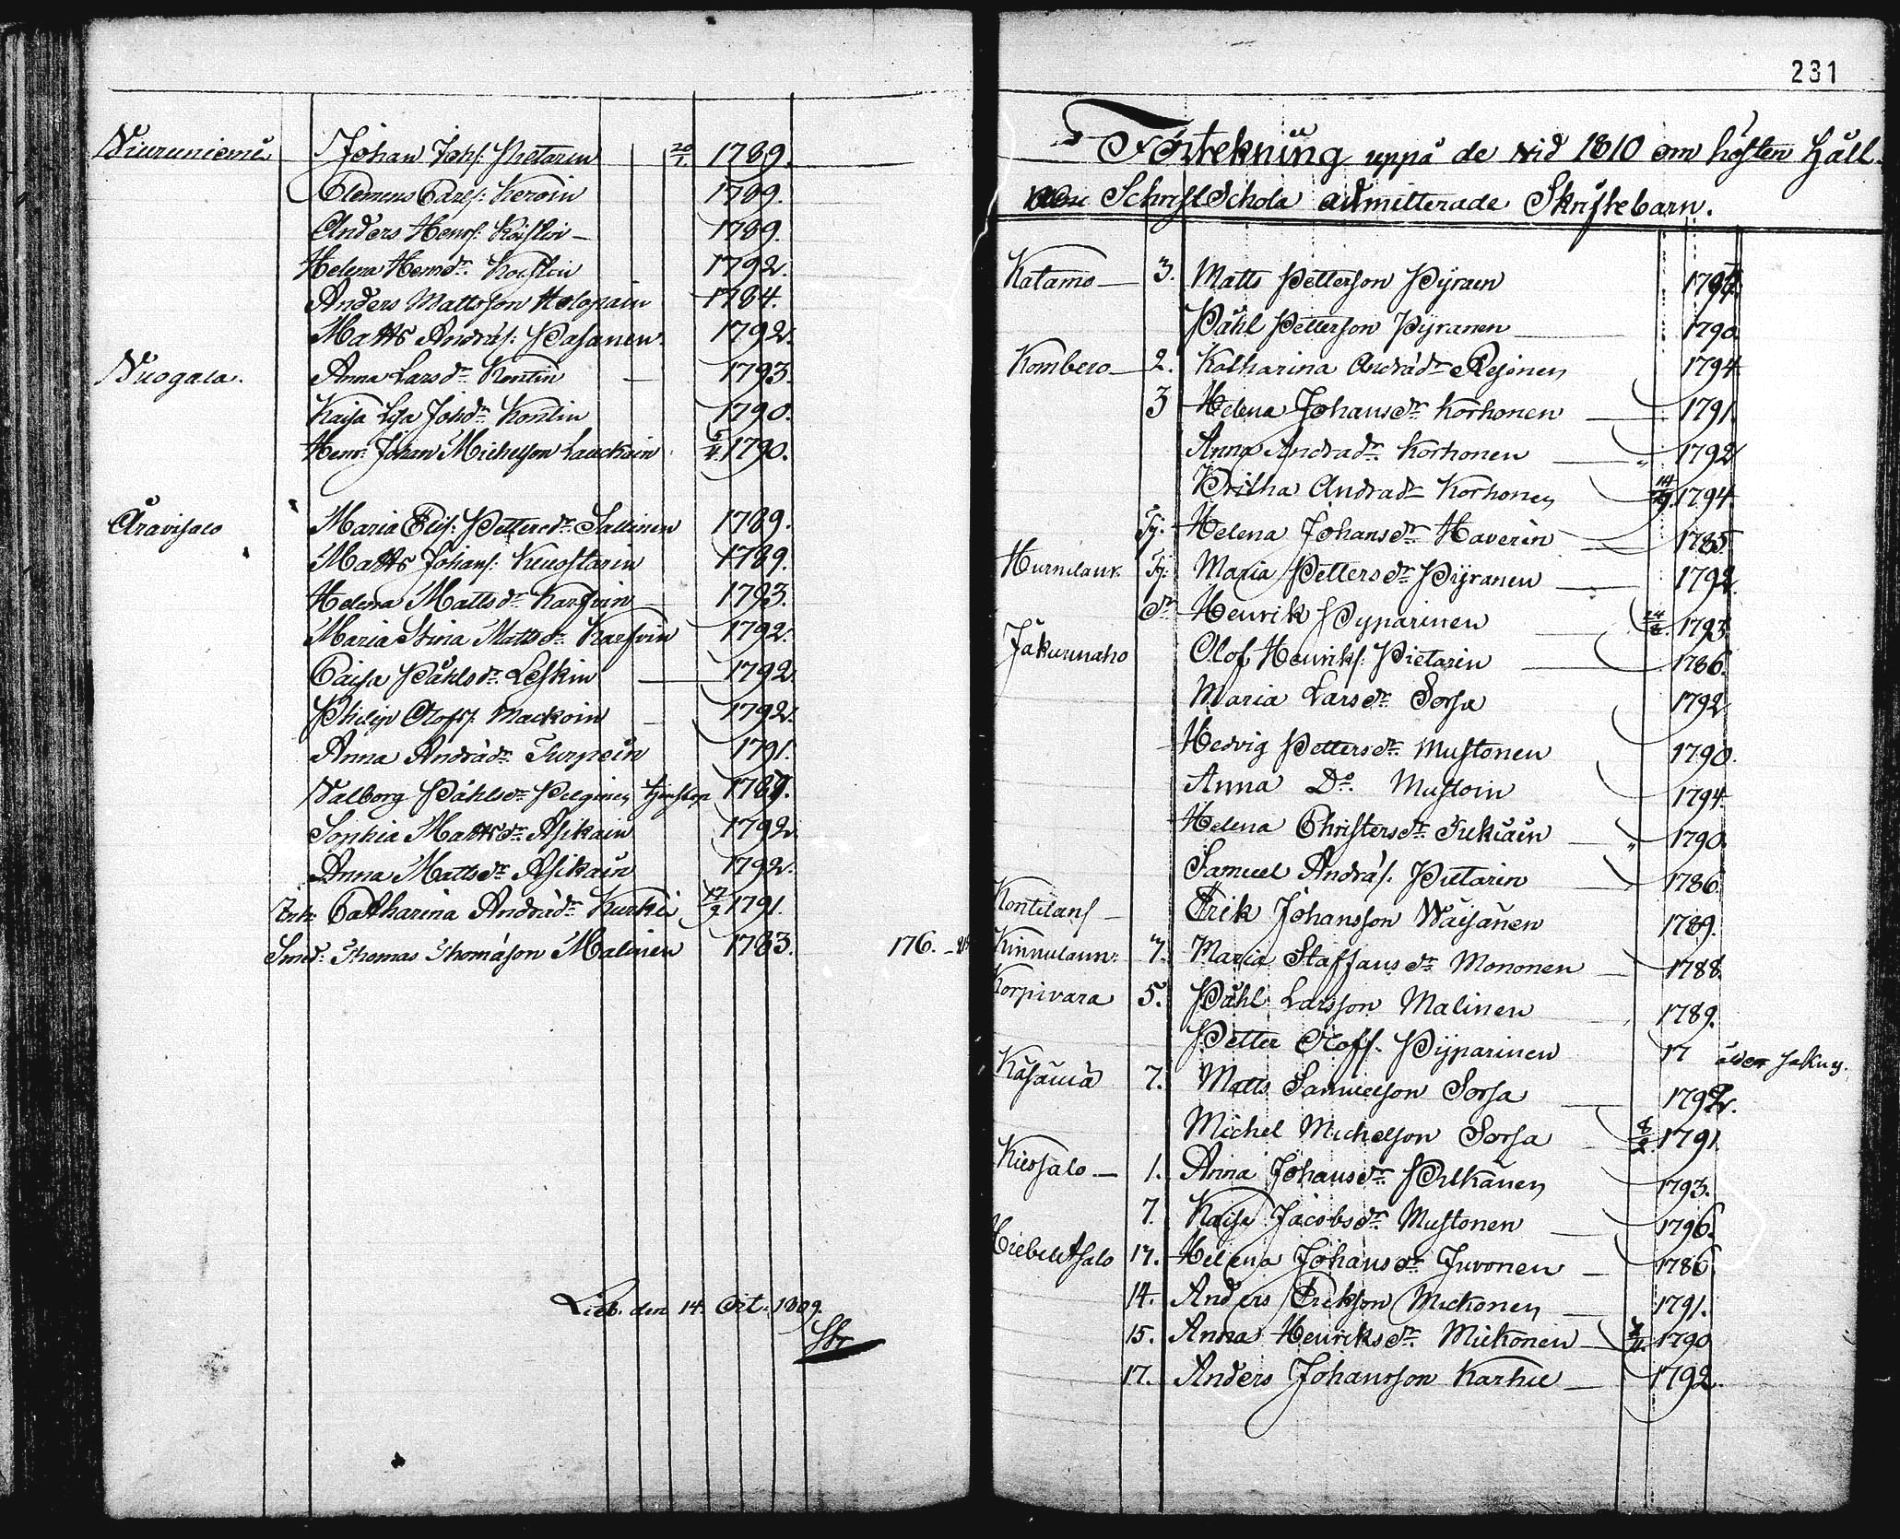 Niuruniemi Johan Johs: Pietarin 20/1 1789.
Clemens Carls: Keroin 1789.
Anders Henrs: Koistin 1789.
Helena Henrsdr. Koistin 1792.
Anders Mattsson Holopain 1784.
Matts András: Pasanen 1792.
Nuogala. Anna Larsdr Kontin 1793.
Kaisa Lisa Johsdr Kontin 1790.
Henr: Johan Michelson Lauckain 5/4 1790.
Aravisalo Maria Elis: Pettersdr Sallinen 1789.
Matts Johans: Kuostarin 1789.
Helena Mattsdr Karfvin 1793.
Maria Stina Mattsdr Karfvin 1792.
Caisa Påhlsdr Leskin 1792
Philip Olofs. Mackoin 1792.
Anna Andrádr Turpein 1791.
Walborg Påhlsdr Pulginen 1787.
Sophia Mattsdr Asikain 1792.
Anna Mattsdr Asikain 1792.
Enk: Catharina Andrádr Kurki 12/9 1791.
Smed: Thomas Thomáson Malinen 1783.
176.
Lieb. den 14. Oct. 1809.
231
Förtekning uppå de vid 1810 om hösten håll
Schrift Schola admitterade Skriftebarn.
Katamo 3. Matts Petterson Pyrain
Påhl Petterson Pyranen 1790.
Kombero 2. Katharina Andrádr Rejonen 1794
3 Helena Johansdr Korhonen 1791.
Anna Andradr. Korhonen 1792
Britha Andradr Korhonen 14/9. 1794
Tj: Helena Johansdr Haverin 1785
Hurnilanx. Tj: Maria Pettersdr Pyranen 1792.
Dr Henrik Pyparinen 24/6. 1793
Jákunnaho Olof Henriks: Pietarin 1786.
Maria Larsdr Sorsa 1792
Hedvig Pettersdr. Mustonen 1790.
Anna Do. Mustoin 1794.
Helena Christersdr Tukiain 1790.
Samuel András. Pietarin 1786.
Kontilans Erik Johansson Wäisänen 1789.
Kinnulanm: 7. Maria Staffansdr Mononen 1788
Korpivara 5. Påhl Larsson Malinen 1789.
Petter Olofs. Pyparinen 17
Käsämä 7. Matts Samuelson Sorsa 1792.
Michel Michelson Sorsa 8/2 1791.
Kuosalo 1. Anna Johansdr Pirkänen 1793.
7. Kaisa Jacobsdr Mustonen 1796.
Hiebelätsalo 14. Helena Johansdr Juvonen 1786
14. Anders Erikson Mickonen 1791.
15. Anna Henriksdr Mickonen 7/4. 1790
17. Anders Johansson Karhu 1792.